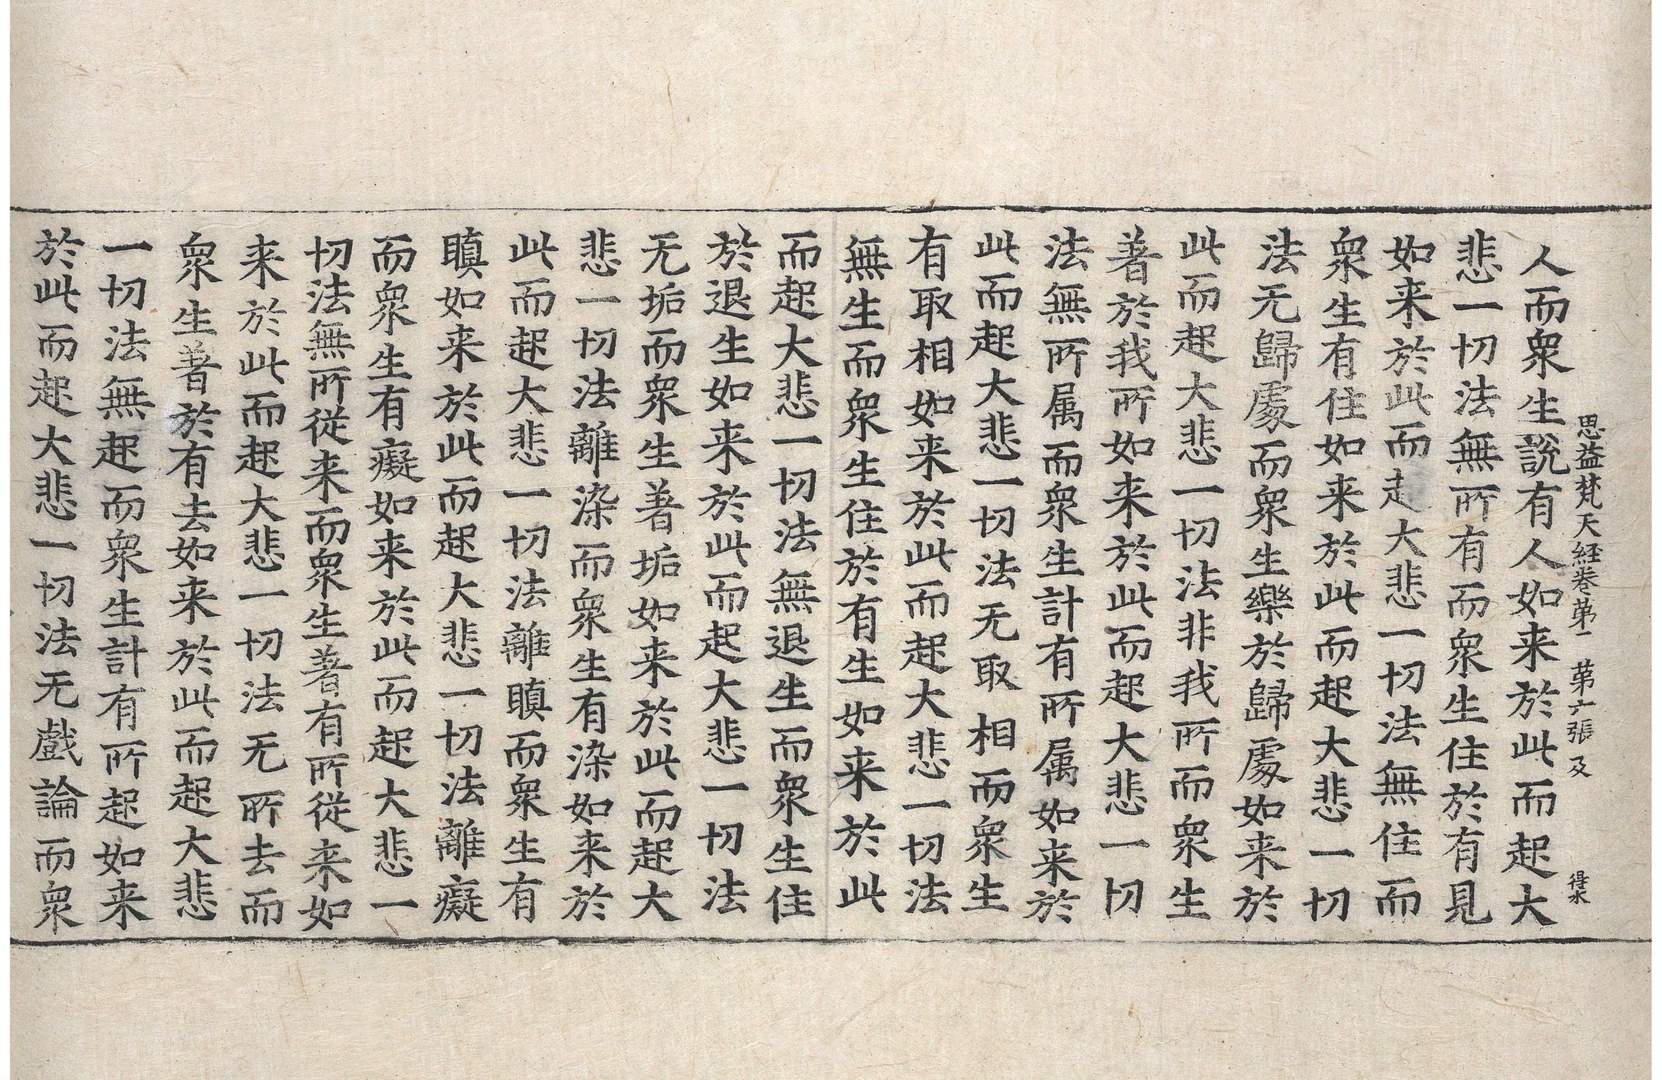 思益梵天経卷苐二　苐六張　及　得水
人而衆生說有人如来於此而起大
悲一切法無所有而衆生住於有見
如来於此而起大悲一切法無住而
衆生有住如来於此而起大悲一切
法无歸處而衆生樂於歸處如来於
此而起大悲一切法非我所而衆生
著於我所如来於此而起大悲一切
法無所属而衆生計有所属如来於
此而起大悲一切法无取相而衆生
有取相如来於此而起大悲一切法
無生而衆生住於有生如来於此
而起大悲一切法無退生而衆生住
於退生如来於此而起大悲一切法
无垢而衆生著垢如来於此而起大
悲一切法離染而衆生有染如来於
此而起大悲一切法離瞋而衆生有
瞋如来於此而起大悲一切法離癡
而衆生有癡如来於此而起大悲一
切法無所従来而衆生著有所従来如
来於此而起大悲一切法无所去而
衆生著於有去如来於此而起大悲
一切法無起而衆生計有所起如来
於此而起大悲一切法无戲論而衆